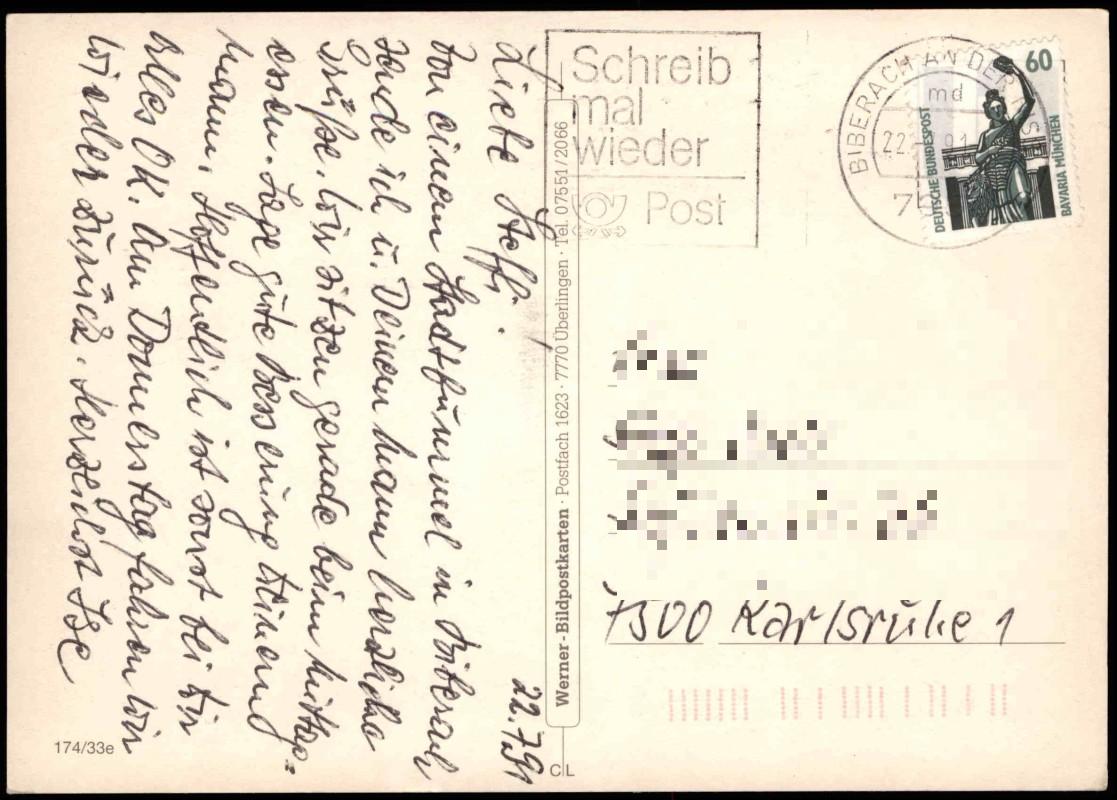 Liebe Steffi. 22.7.91
Von einem Stadtbummel in Biberach
sende ich u. Deinem Mann herzliche
Grüße. Wir sitzen gerade beim Mittag-
essen. Sage gute Besserung Deinem
Mann. Hoffendlich ist sonst bei Dir
alles OK. Am Donnerstag fahren wir
wieder zurück. Herzlichst Ilse
174/33e
Werner-Bildpostkarten · Postfach 1623 · 7770 Überlingen · Tel. 07551/2066
CL
Schreib
mal
wieder
Post
BIBERACH AN DER
md
22.
60
DEUTSCHE BUNDESPOST
BAVARIA MÜNCHEN
7500 Karlsruhe 1